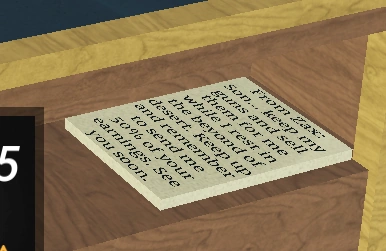 From Zax:
Son.. keep my
guns and sell
them for me
while I rest in
the beyond of
desert. Keep up
and remember
to send me
50% of your
earnings. See
you soon.
5